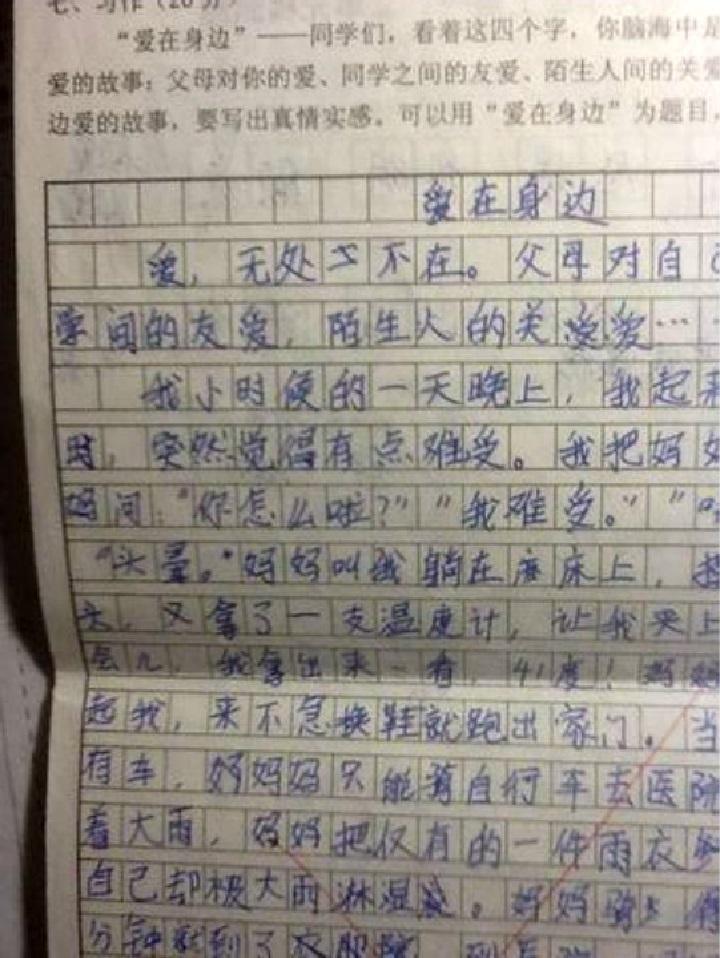 七、习作（20分）
“爱在身边”——同学们，看着这四个字，你脑海中是
爱的故事：父母对你的爱、同学之间的友爱、陌生人间的关爱
边爱的故事，要写出真情实感。可以用“爱在身边”为题目，
爱在身边
爱，无处不在。父母对自
学间的友爱，陌生人的关爱……
我小时候的一天晚上，我起来
时，突然觉得有点难受。我把妈妈
妈问：“你怎么啦？”“我难受。”“
“头晕。”妈妈叫我躺在床上，
头，又拿了一支温度计，让我夹上
会儿，我拿出来一看，41度！妈妈
起我，来不急换鞋就跑出家门。当
有车，妈妈只能骑自行车去医院
着大雨，妈妈把仅有的一件雨衣
自己却被大雨淋湿。妈妈骑
分钟就到了